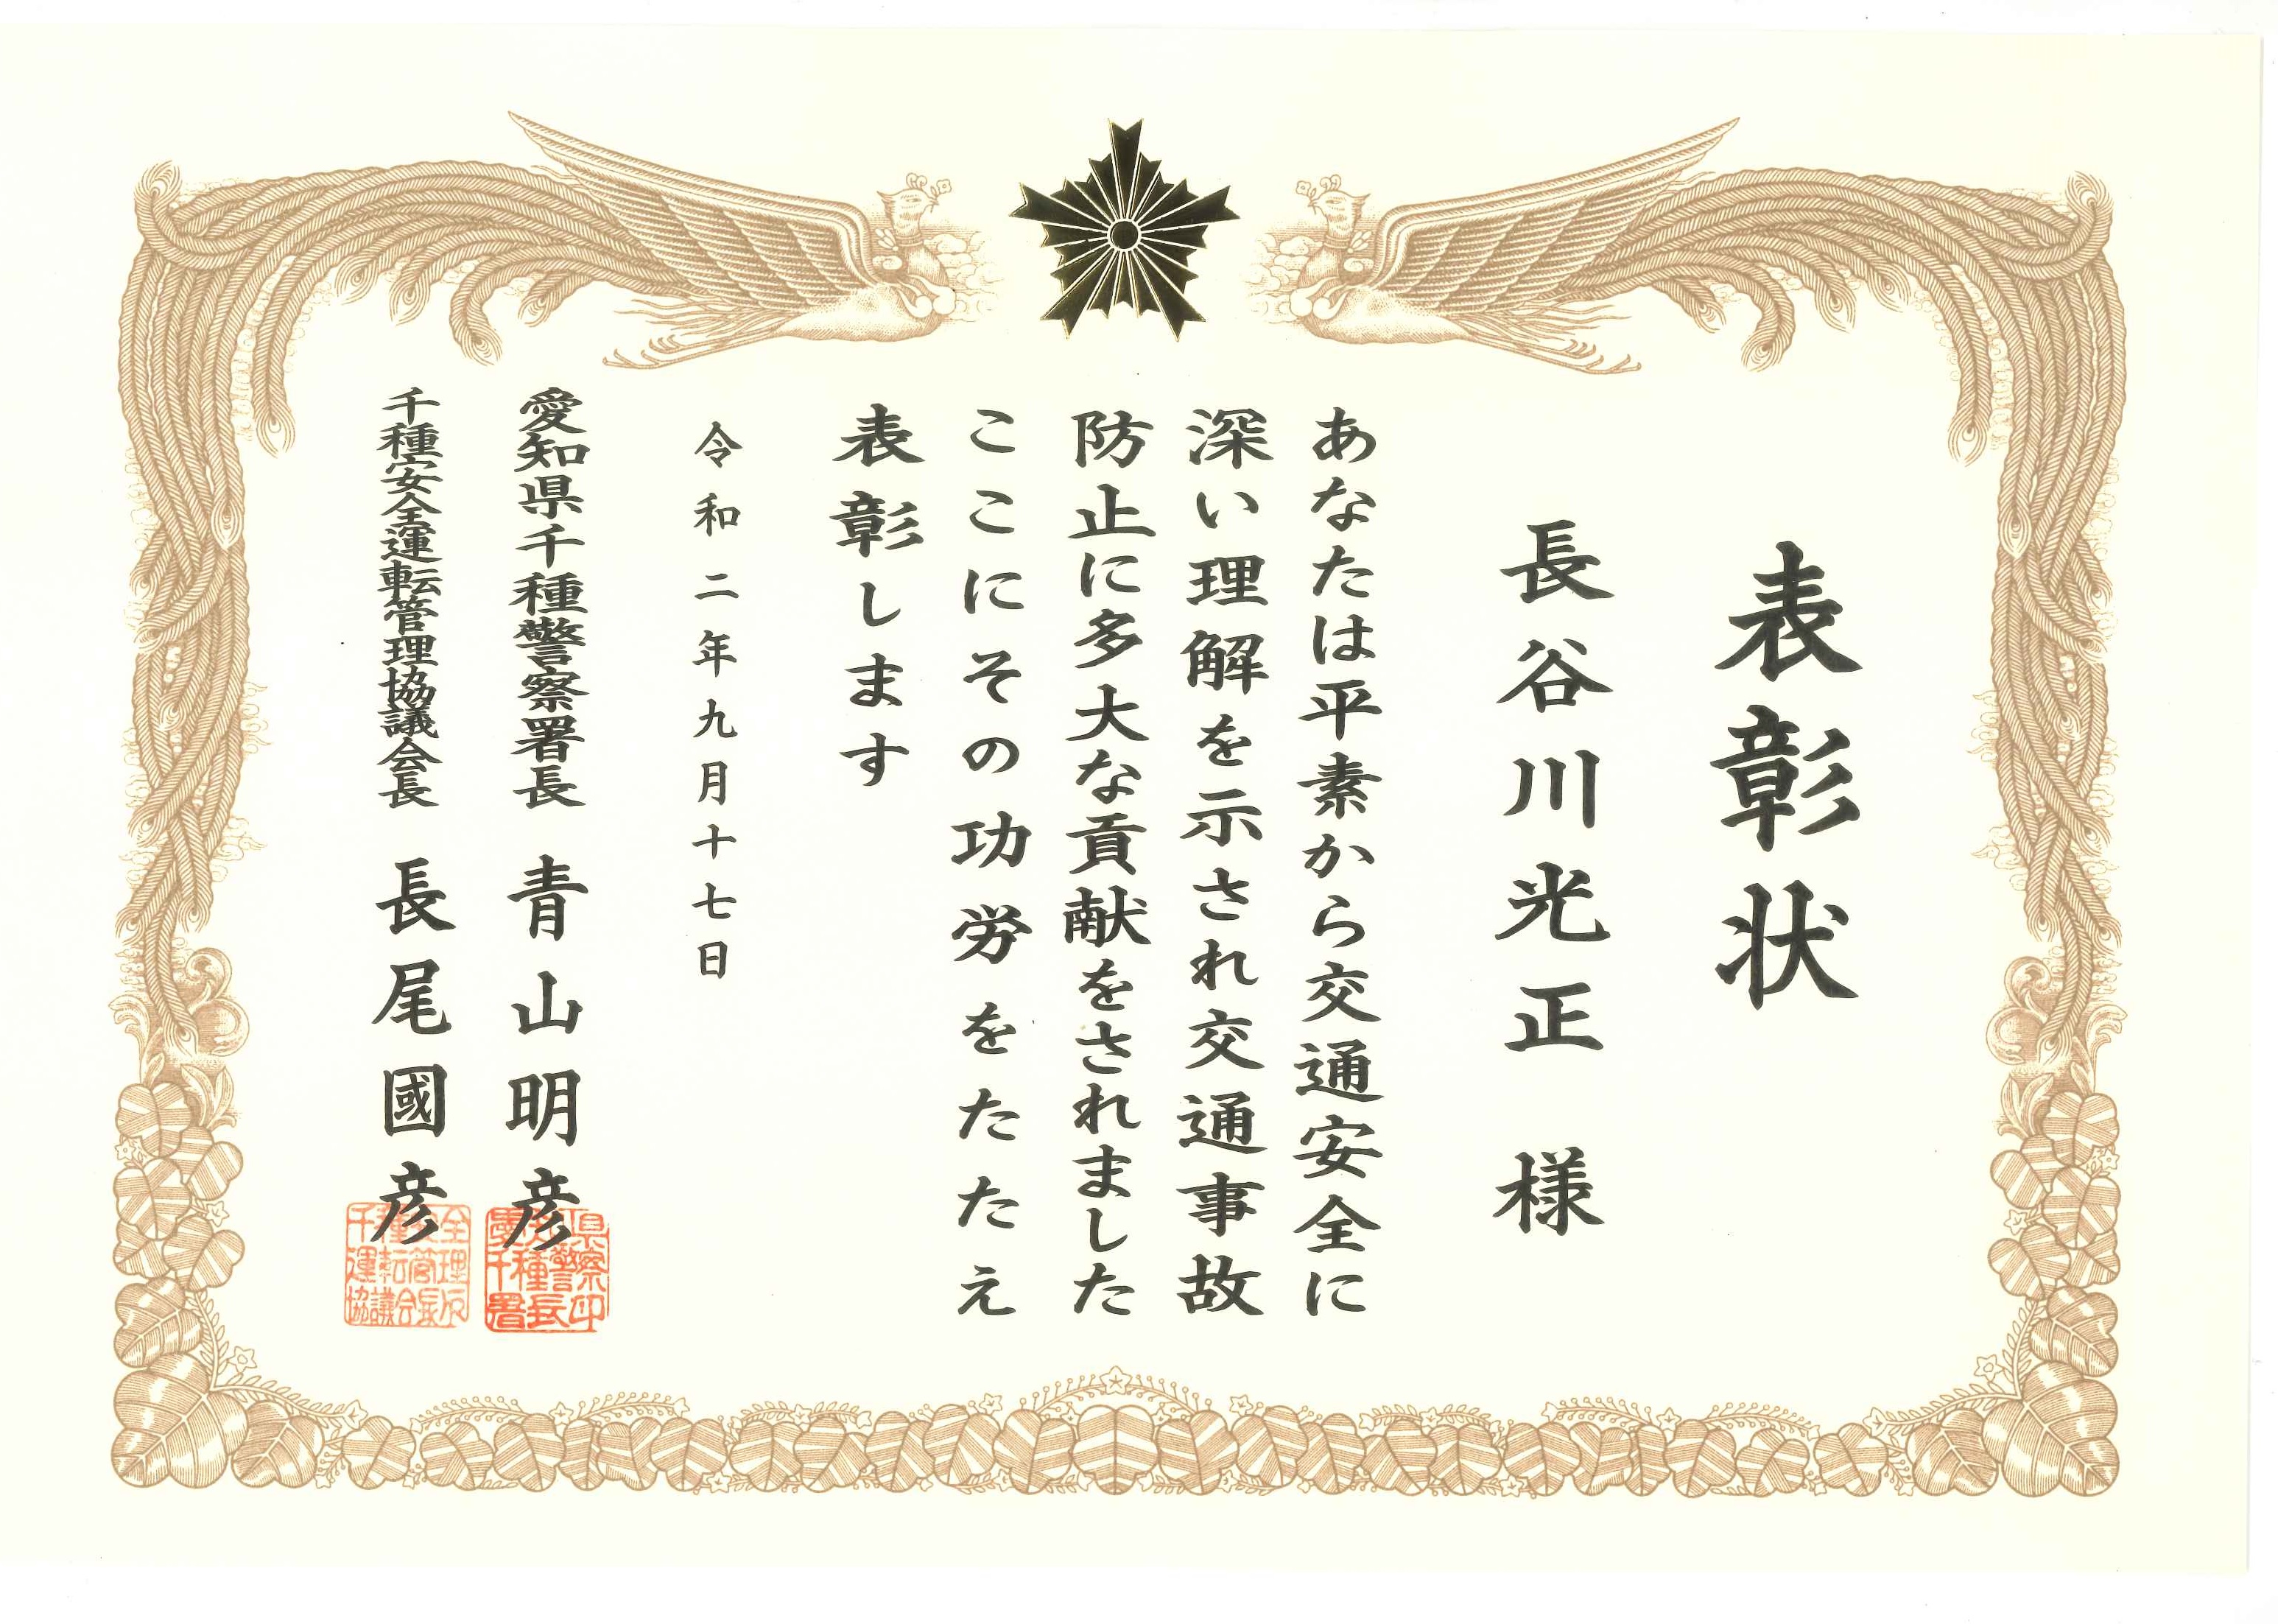 表彰状
長谷川光正 様
あなたは平素から交通安全に
深い理解を示され交通事故
防止に多大な貢献をされました
ここにその功労をたたえ
表彰します
令和二年九月十七日
愛知県千種警察署長 青山明彦
千種安全運転管理協議会長 長尾國彦